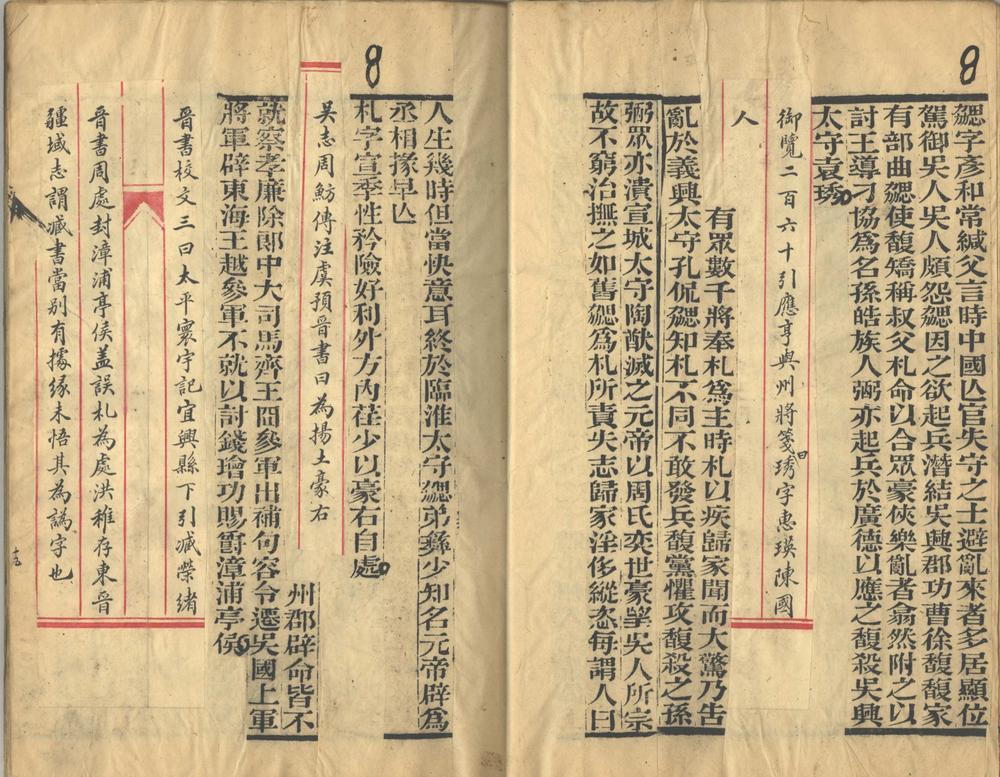 8
勰字彥和常緘父言時中國亾官失守之士避亂來者多居顯位
駕御吳人吳人頗怨勰因之欲起兵潛結吳興郡功曹徐馥馥家
有部曲勰使馥矯稱叔父札命以合眾豪俠樂亂者翕然附之以
討王導刁協爲名孫皓族人弼亦起兵於廣德以應之馥殺吳興
太守袁琇
御覽二百六十引應亨與州將箋曰琇字惠瑛陳國
人
有眾數千將奉札爲主時札以疾歸家聞而大驚乃告
亂於義興太守孔侃勰知札不同不敢發兵馥黨懼攻馥殺之孫
弼眾亦潰宣城太守陶猷滅之元帝以周氏奕世豪望吳人所宗
故不窮治撫之如舊勰爲札所責失志歸家淫侈縱恣每謂人曰
8
人生幾時但當快意耳終於臨淮太守勰弟彝少知名元帝辟爲
丞相掾早亾
札字宣季性矜險好利外方內荏少以豪右自處
吳志周魴傳注虞預晉書曰為揚土豪右
州郡辟命皆不
就察孝廉除郞中大司馬齊王冏參軍出補句容令遷吳國上軍
將軍辟東海王越參軍不就以討錢璯功賜爵漳浦亭侯
晉書校文三曰太平寰宇記宜興縣下引臧榮緒
晉書周處封漳浦亭侯盖誤札為處洪稚存東晉
疆域志謂臧書當別有據緣未悟其為譌字也